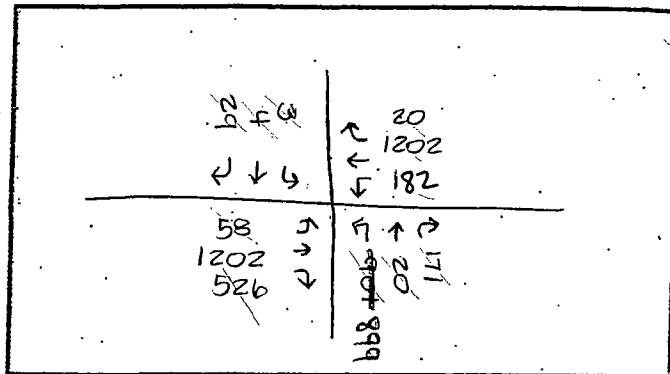 4
3
20
1202
182
58
1202
526
20
171